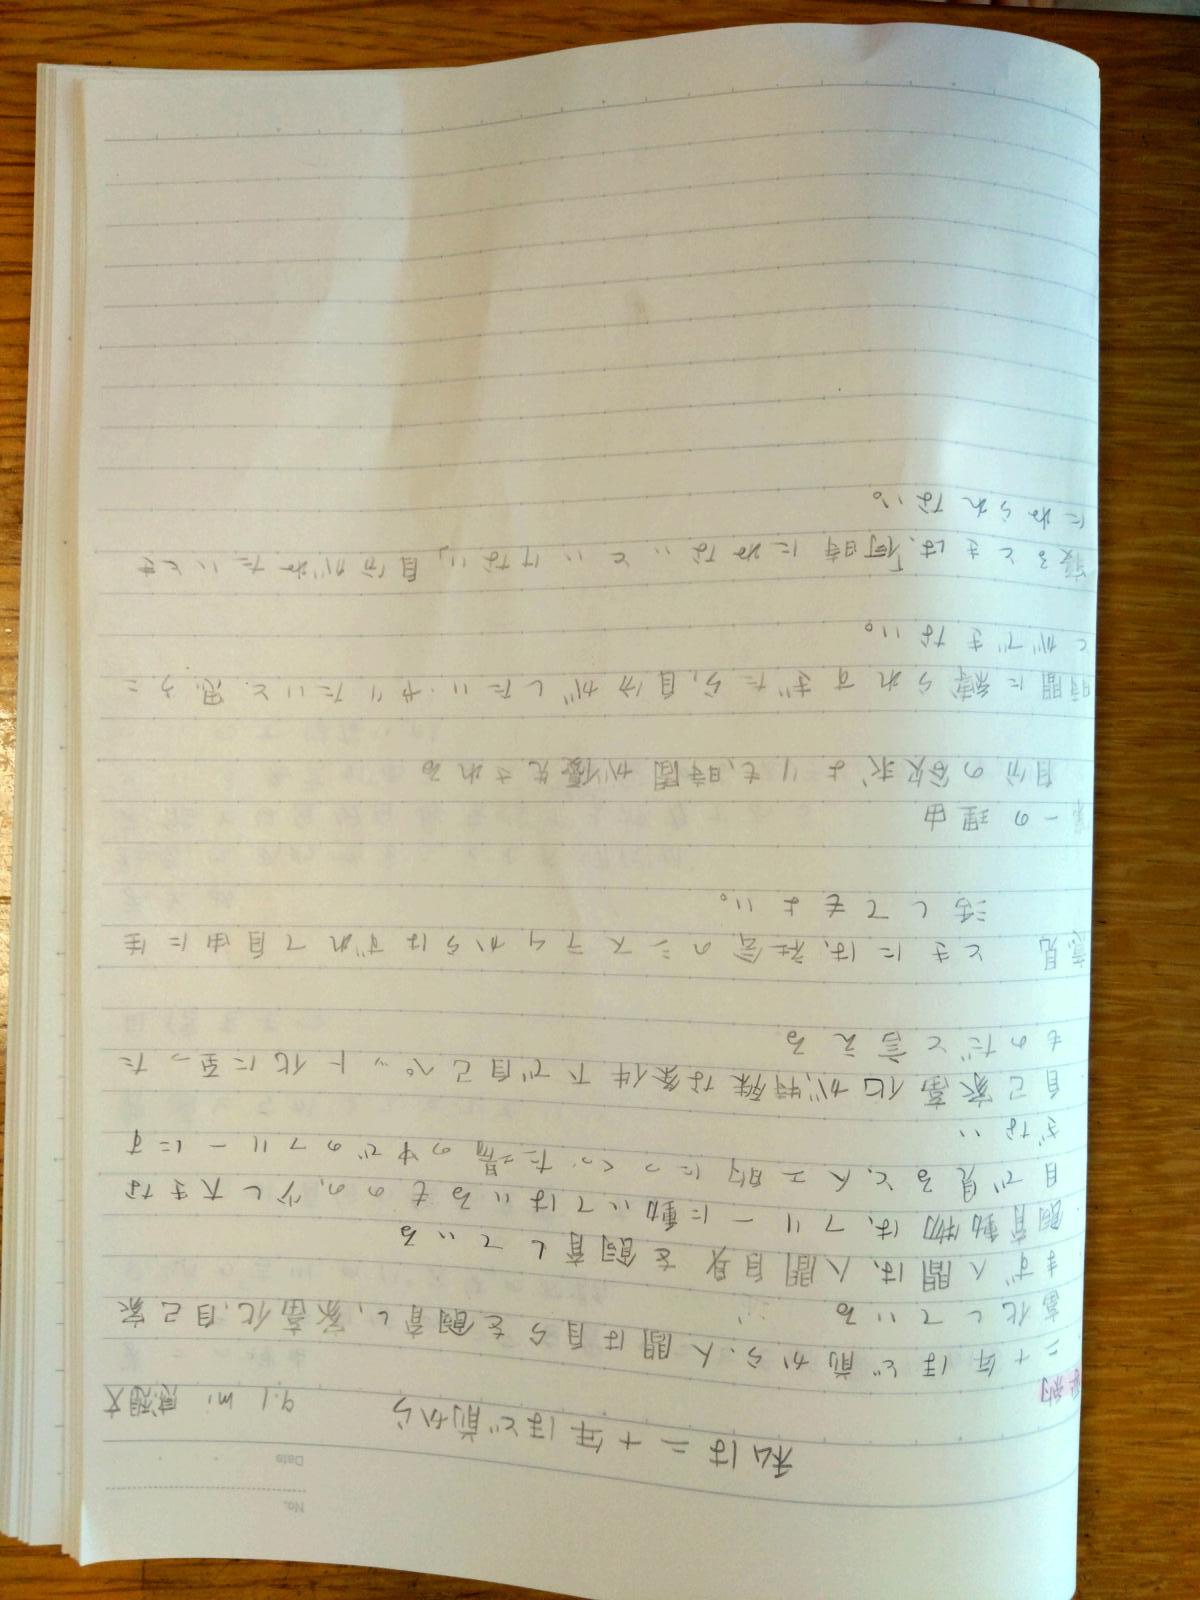 No.
Date
私は二十年ほど前から 9.1 mi 感想文
要約
二十年ほど前から、人間は自らを飼育し、家畜化、自己家
畜化している
まず人間は、人間自身を飼育している
飼育動物は、フリーに動いてはいるものの、少し大きな
目で見ると、人工的につくった場の中でのフリーにす
ぎない
自己家畜化が、特殊な条件下で自己ペット化に至った
ものだと言える
意見 ときには、社会のシステムからはずれて自由に生
活してもよい。
第一の理由
自分の欲求よりも、時間が優先される
時間に縛られすぎたら、自分がしたい・やりたいと思うこ
とができない。
寝るときは、「何時にねないといけない」、自分がねたいとき
にねられない。